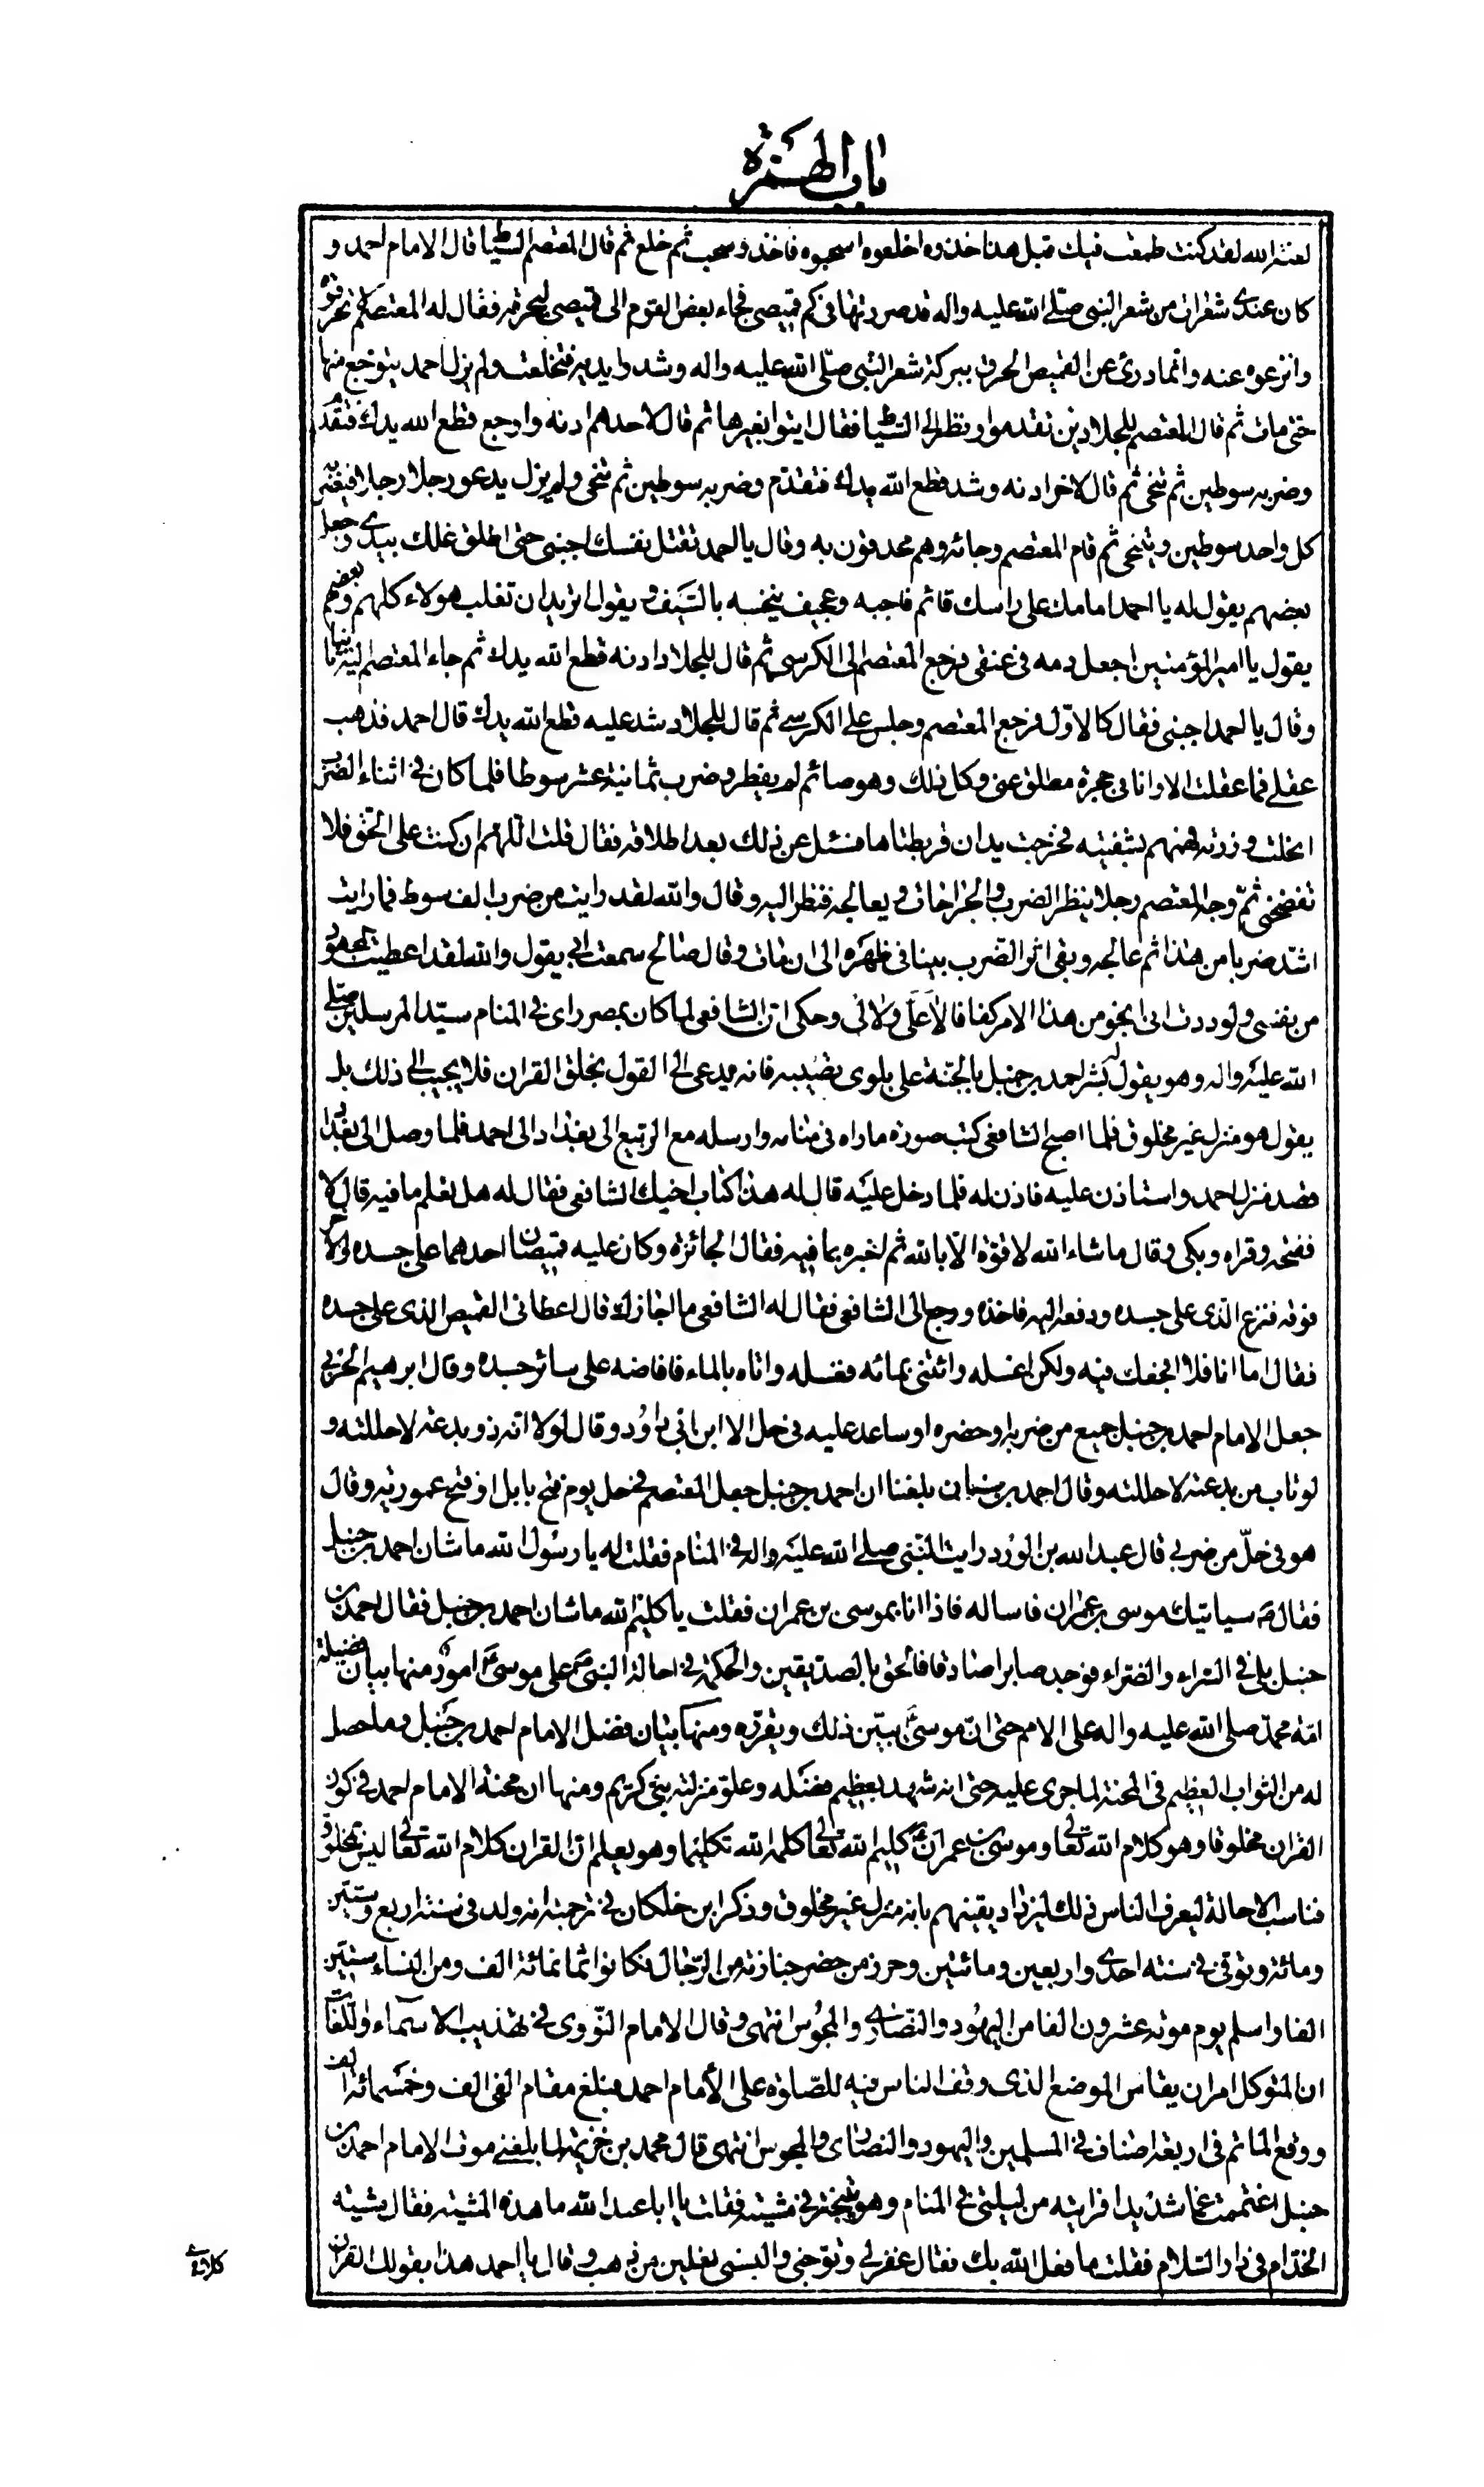 باب الهمزة
لعنة الله لقد كنت طمعت فيك قبل هذا خذوه اخلعوه اسحبوه فاخذ وسحب ثم خلع ثم قال المعتصم السياط قال الامام احمد و
كان عندى شعرات من شعر النبى صلى الله عليه واله قد صررتها فى كم قميصى فجاء بعض القوم الى قميصى ليحرقه فقال له المعتصم لا تحرقوه
وانزعوه عنه وانما درئ عن القميص الحرق ببركة شعر النبى صلى الله عليه واله وشدوا يديه فتخلعت ولم يزل احمد يتوجع منها
حتى مات ثم قال المعتصم للجلادين تقدموا ونظر الى السياط فقال ايتوا بغيرها ثم قال لاحدهم ادنه واوجع قطع الله يدك فتقدم
وضربه سوطين ثم تنحى ثم قال لاخر ادنه وشد قطع الله يدك فتقدم وضربه سوطين ثم تنحى ولم يزل يدعو رجلا رجلا فيضربه
كل واحد سوطين ويتنحى ثم قام المعتصم وجائه وهم محدقون به وقال يا احمد تقتل نفسك اجبنى حتى اطلق غلك بيدى وجعل
بعضهم يقول له يا احمد امامك على راسك قائم فاجبه وعجيف ينخسه بالسيف ويقول اتريد ان تغلب هولاء كلهم وبعضهم
يقول يا امير المؤمنين اجعل دمه فى عنقى فرجع المعتصم الى الكرسى ثم قال للجلاد ادنه قطع الله يدك ثم جاء المعتصم اليه ثانيا
وقال يا احمد اجبنى فقال كالاول فرجع المعتصم وجلس على الكرسى ثم قال للجلاد شد عليه قطع الله يدك قال احمد فذهب
عقلى فما عقلت الا وانا فى حجرة مطلق عنى وكل ذلك وهو صائم لم يفطر وضرب ثمانية عشر سوطا فلما كان فى اثناء الضرب
انحلت وزرته فهمهم بشفتيه فخرجت يدان فربطتاها فسئل عن ذلك بعد اطلاقه فقال قلت اللهم ان كنت على الحق فلا
تفضحنى ثم وجه المعتصم رجلا ينظر الضرب والجراحات ويعالجه فنظر اليه وقال والله لقد رايت من ضرب الف سوط فما رايت
اشد ضربا من هذا ثم عالجه وبقى اثر الضرب بينا فى ظهره الى ان مات وقال صالح سمعت ابى يقول والله لقد اعطيت المجهود
من نفسى ولوددت انى انجو من هذا الامر كفافا لا على ولا لى وحكى ان الشافعى لما كان بمصر راى فى المنام سيد المرسلين صلى
الله عليه واله وهو يقول له بشر احمد بن حنبل بالجنة على بلوى تصيبه فانه يدعى الى القول بخلق القران فلا يجيب الى ذلك بل
يقول هو منزل غير مخلوق فلما اصبح الشافعى كتب صورة ما راه فى منامه وارسله مع الربيع الى بغداد الى احمد فلما وصل الى بغداد
قصد منزل احمد واستاذن عليه فاذن له فلما دخل عليه قال له هذا كتاب اخيك الشافعى فقال له هل تعلم ما فيه قال لا
ففتحه وقراه وبكى وقال ما شاء الله لا قوة الا بالله ثم اخبره بما فيه فقال الجائزة وكان عليه قميصان احدهما على جسده والاخر
فوقه فنزع الذى على جسده ودفعه اليه فاخذه ورجع الى الشافعى فقال له الشافعى ما اجازك قال اعطانى القميص الذى على جسده
فقال اما انا فلا افجعك فيه ولكن اغسله وائتنى بمائه فغسله واتاه بالماء فافاضه على سائر جسده وقال ابرهيم الحربى
جعل الامام احمد بن حنبل جميع من ضربه او حضره او ساعد عليه فى حل الا ابن ابى داود وقال لولا انه ذو بدعة لاحللته و
لو تاب من بدعته لاحللته وقال احمد بن سنان بلغنا ان احمد بن حنبل جعل المعتصم فى حل يوم فتح بابل او فتح عمورية وقال
هو فى حل من ضربى قال عبد الله بن الورد رايت النبى صلى الله عليه واله فى المنام فقلت له يا رسول الله ما شان احمد بن حنبل
فقال ص سياتيك موسى بن عمران فاساله فاذا انا بموسى بن عمران فقلت يا كليم الله ما شان احمد بن حنبل فقال احمد بن
حنبل بلى فى السراء والضراء فوجد صابرا صادقا فالحق بالصديقين والحكمة فى احالة النبى ص على موسى ع امور منها بيان فضيلة
امة محمد صلى الله عليه واله على الامم حتى ان موسى ع يبين ذلك ويقرره ومنها بيان فضل الامام احمد بن حنبل وما حصل
له من الثواب العظيم فى المحنة لما جرى عليه حتى انه شهد بعظيم فضله وعلو منزلته نبى كريم ومنها ان محنة الامام احمد فى كون
القران مخلوقا وهو كلام الله تعالى وموسى بن عمران ع كليم الله تعالى كلمه الله تكليما وهو يعلم ان القران كلام الله تعالى ليس بمخلوق
فناسب الاحالة ليعرف الناس ذلك ليزداد يقينهم بانه منزل غير مخلوق وذكر ابن خلكان فى ترجمته انه ولد فى سنة اربع وستين
ومائة وتوفى فى سنته احدى واربعين ومائتين وحرز من حضر جنازته من الرجال فكانوا ثمانمائة الف ومن النساء ستين
الفا واسلم يوم موته عشرون الفا من اليهود والنصارى والمجوس انتهى وقال الامام النووى فى تهذيب الاسماء واللغات
ان المتوكل امر ان يقاس الموضع الذى وقف الناس فيه للصلوة على الامام احمد فبلغ مقام الفى الف وخمسمائة الف
ووقع الماتم فى اربعة اصناف فى المسلمين واليهود والنصارى والمجوس انتهى قال محمد بن خزيمة لما بلغنى موت الامام احمد بن
حنبل اغتممت غما شديدا فرايته من ليلتى فى المنام وهو يتبختر فى مشيته فقلت يا ابا عبد الله ما هذه المشية فقال مشية
الخدام فى دار السلام فقلت ما فعل الله بك فقال غفر لى وتوجنى والبسنى نعلين من ذهب وقال يا احمد هذا بقولك القران
كلامى